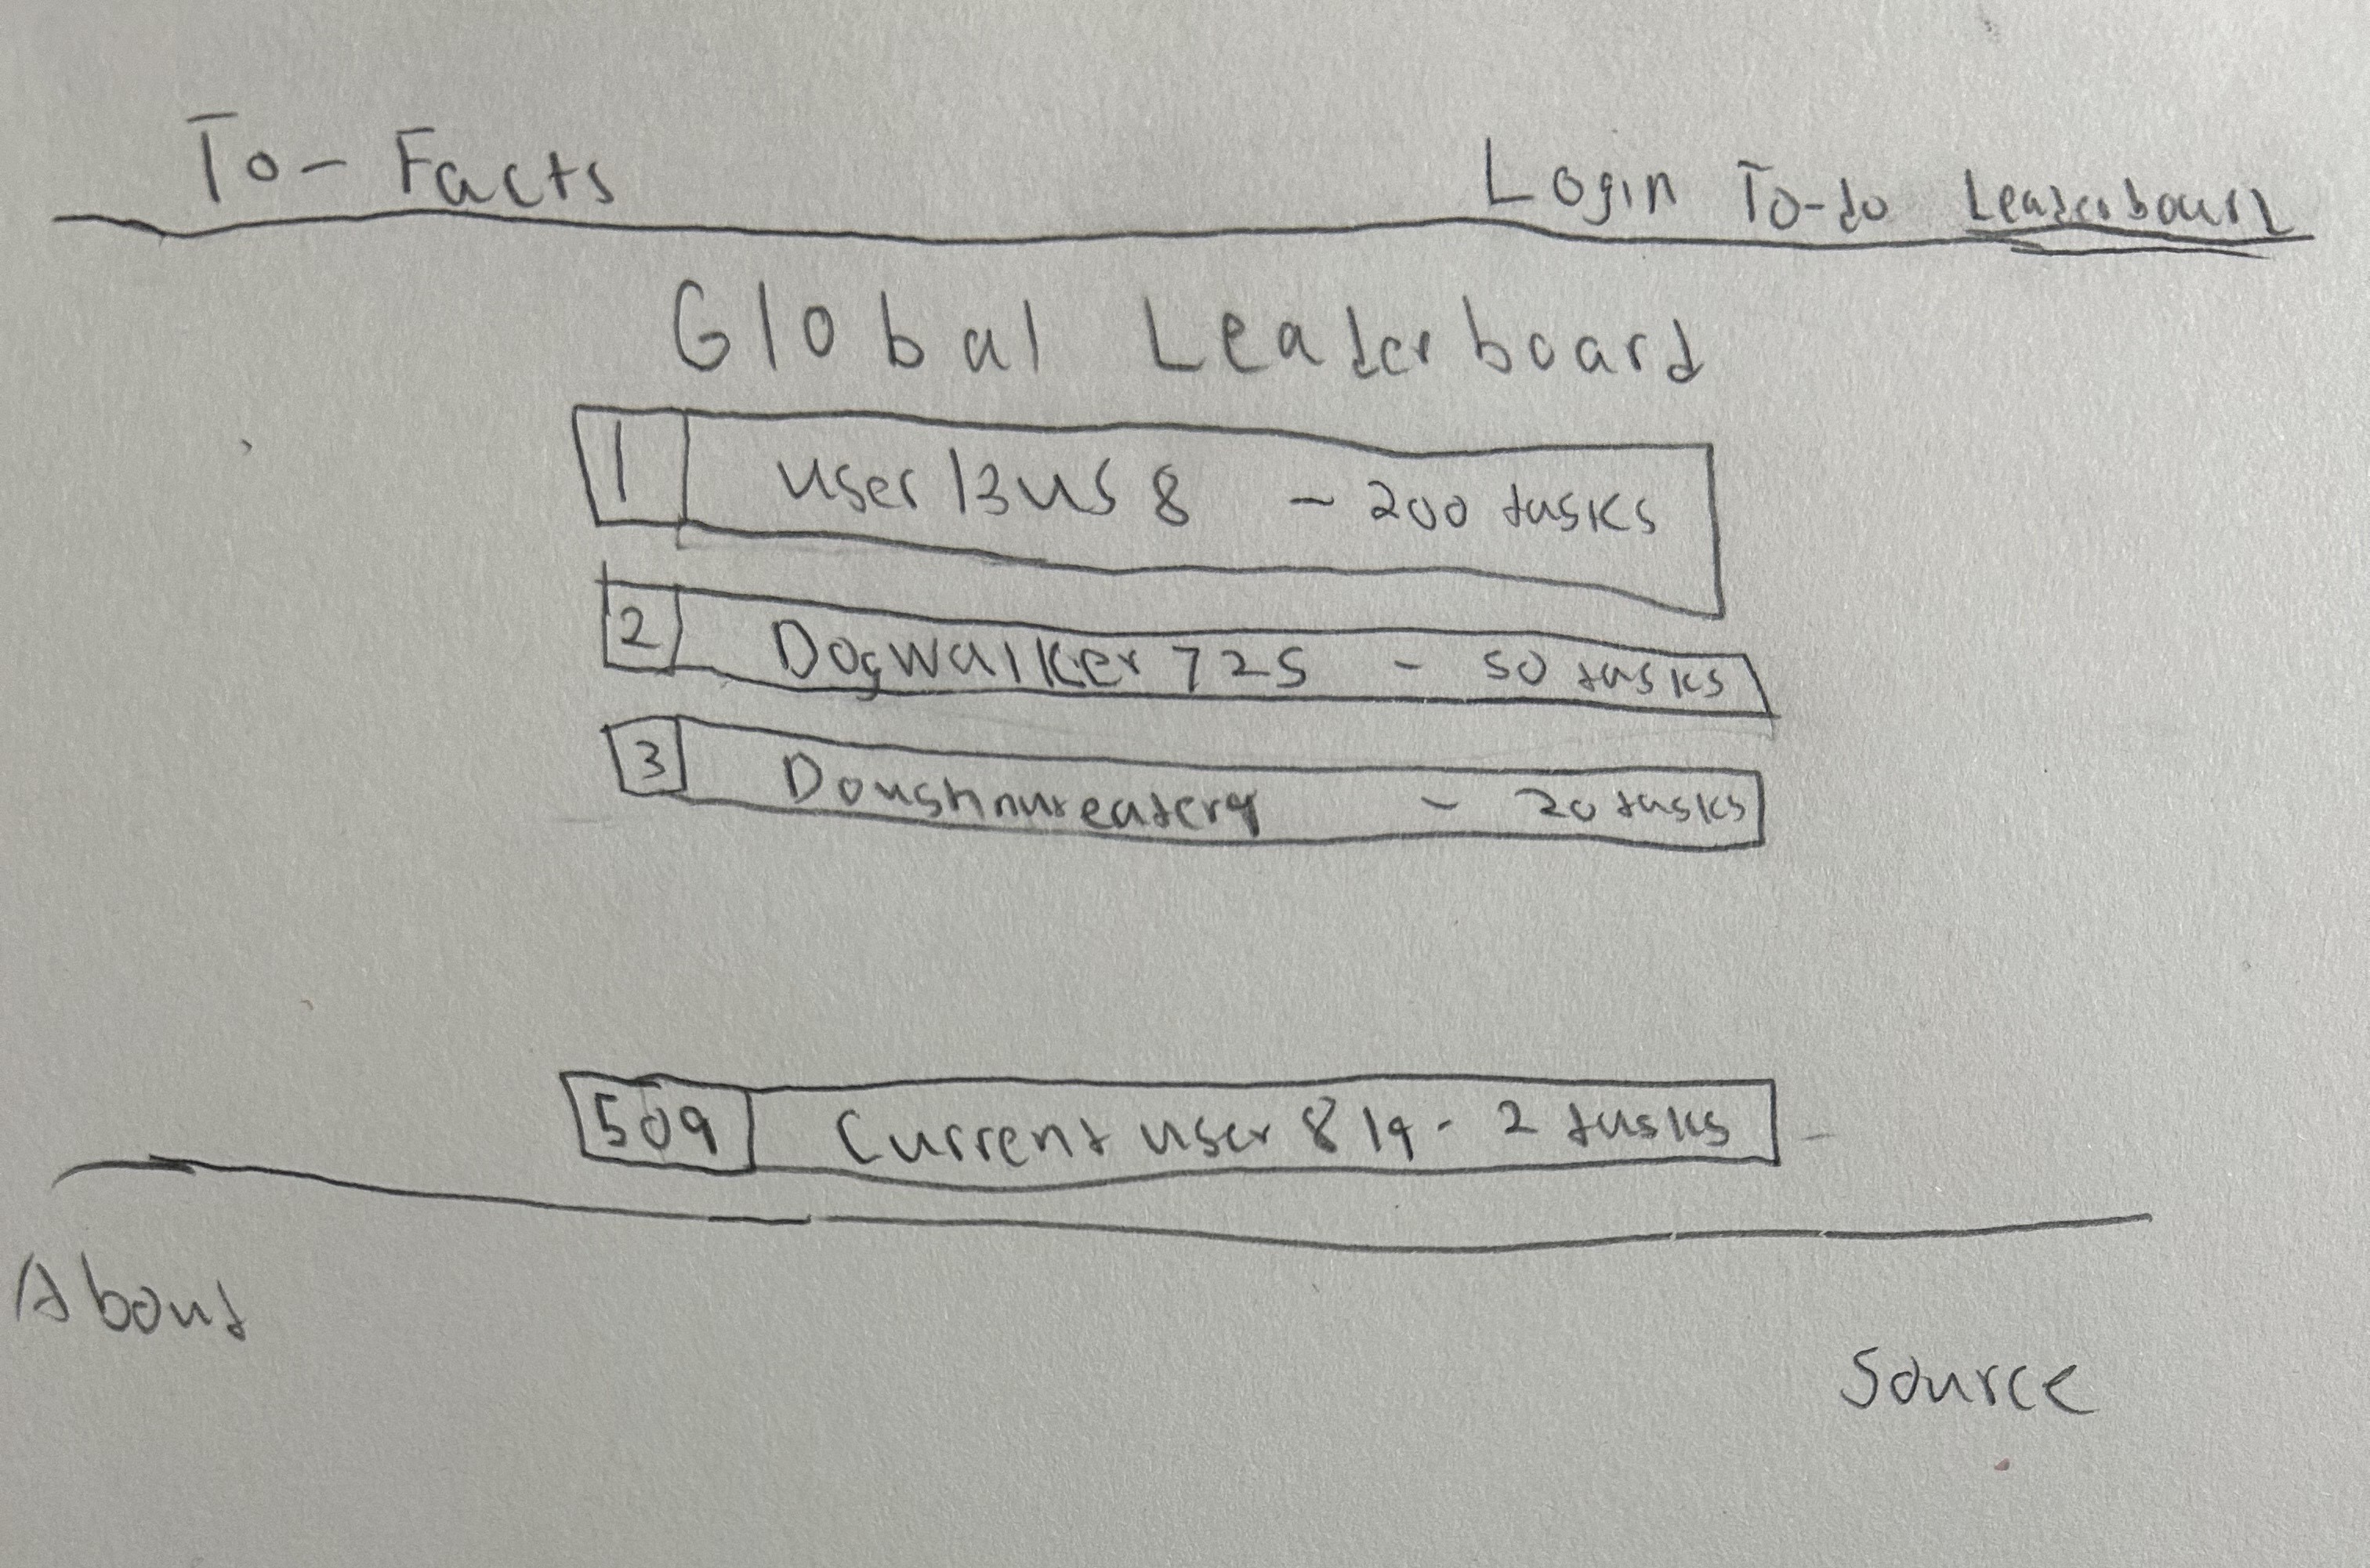 To-Facts Login To-do Leaderboard
Global Leaderboard
1 user 13458 - 200 tasks
2 Dogwalker 725 - 50 tasks
3 - 20 tasks
509 Current user 819 - 2 tasks
About
Source